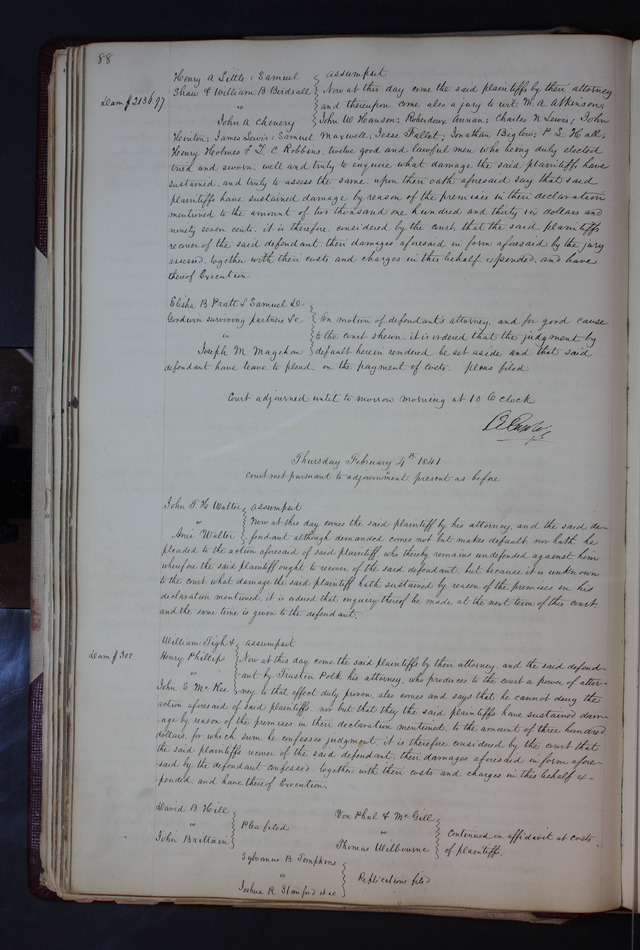 88
Henry A Little : Samuel } assumpsit
Shaw & William B Birdsall } Now at this day come the said plaintiffs by their attorney
Dam $2136.97 vs } and thereupon come also a jury to wit, W. A. Atkinson;
John A Chenery } John W Hanson; Robardeux Annan; Charles N Lewis; John
Hinton; James Lewis; Samuel Maxwell, Jesse Tallot; Jonathan Biglow; P L Hall;
Henry Holmes & L C Robbins, twelve good and lawful men who being duly elected
tried and sworn, well and truly to enquire what damage the said plaintiffs have
sustained, and truly to assess the same, upon their oath aforesaid say that said
plaintiffs have sustained damage by reason of the premises in their declaration
mentioned to the amount of two thousand one hundred and thirty six dollars and
ninety seven cents, it is therefore considered by the court, that the said plaintiffs
recover of the said defendant their damages aforesaid in form aforesaid by the jury
assessed, together with their costs and charges in this behalf expended, and have
thereof Execution.
Elisha B Pratt & Samuel De
Goodwin surviving partners &c } On motion of defendant's attorney, and for good cause
vs } to the court shewn it is ordered that the judgment by
Joseph M. Magehan } default herein rendered be set aside and that said
defendant have leave to plead, on the payment of costs. pleas filed
Court adjourned until to morrow morning at 10 O clock
Thursday February 4th 1841
court met pursuant to adjournment present as before
John F H Walter } assumpsit
vs } Now at this day comes the said plaintiff by his attorney, and the said de-
Ami Walter } fendant although demanded comes not but makes default, nor hath he
pleaded to the action aforesaid of said plaintiff, who thereby remains undefended against him
wherefore the said plaintiff ought to recover of the said defendant, but because it is unknown
to the court what damage the said plaintiff hath sustained by reason of the premises in his
declaration mentioned, it is ordered that enquiry thereof be made at the next term of this court
and the same time is given to the defendant.
William Tigh & } assumpsit
Dam $300 Henry Phillips } Now at this day come the said plaintiffs by their attorney, and the said defend-
vs } ant by Trusten Polk his attorney, who produces to the court a power of attor-
John S McKee } ney to that effect duly proven, also comes and says that he cannot deny the
action aforesaid of said plaintiffs, nor but that they the said plaintiffs have sustained dam-
age by reason of the premises in their declaration mentioned, to the amount of three hundred
dollars, for which sum he confesses judgment, it is therefore considered by the court that
the said plaintiffs recover of the said defendant, their damages aforesaid in form afore-
said by the defendant confessed, together with their costs and charges in this behalf ex-
pended, and have thereof Execution.
David B Hill
vs } Plea filed
John Brittain
Von Phul & McGill
vs } Continued on affidavit at costs
Thomas Wilbourne } of plaintiffs.
Sylvanus B Tompkins
vs } Replications filed
Joshua R Stanford et al